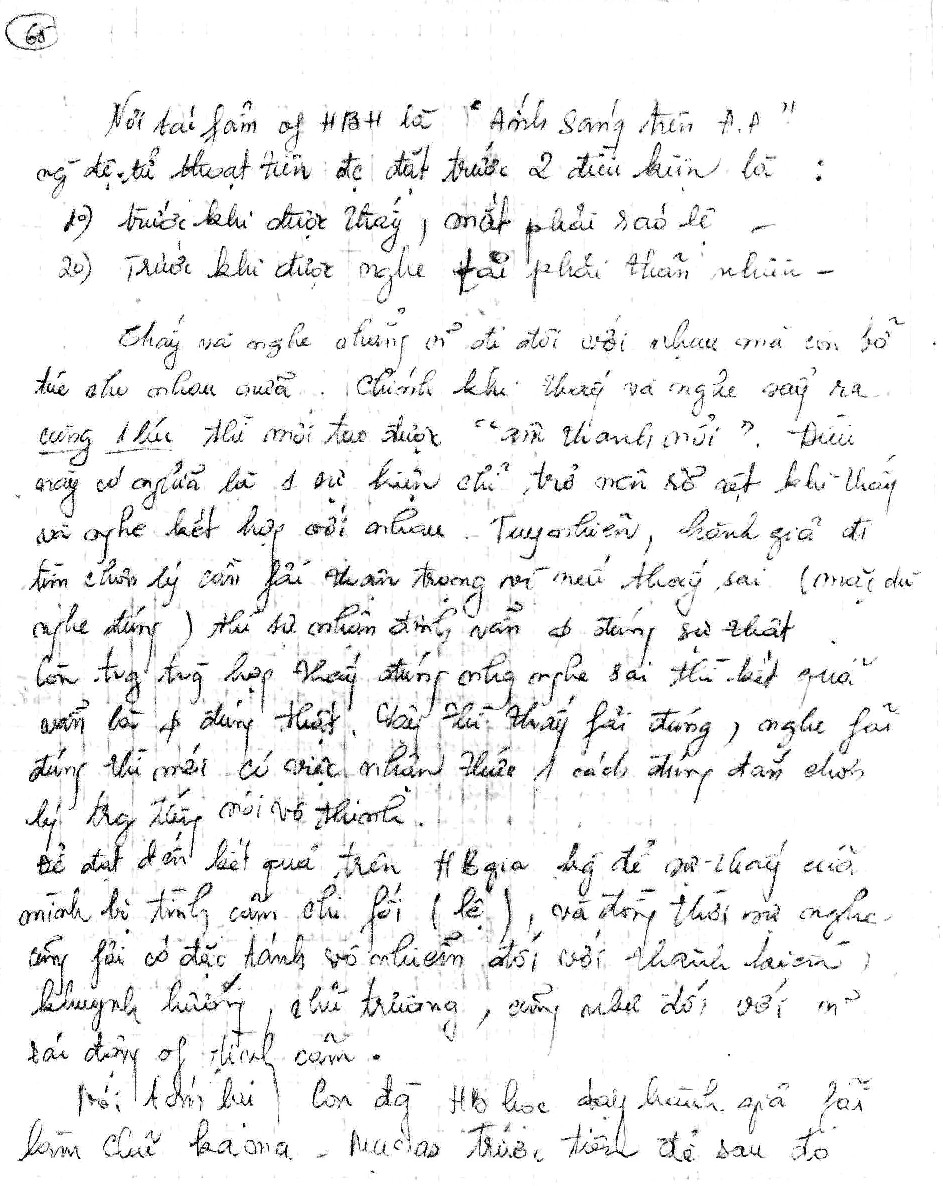 68
Nơi tác fẩm of HBH là "Ánh Sáng trên Đ.Đ"
ng đệ-tử thoạt tiên đc đặt trước 2 điều kiện là :
1o) trước khi được thấy, mắt phải ráo lệ –
2o) Trước khi được nghe tai phải thản nhiên –
Thấy và nghe chẳng n~ đi đôi với nhau mà còn bổ
túc cho nhau nữa. Chính khi thấy và nghe xảy ra
cùng 1 lúc thì mới tạo được "âm thanh nổi". Điều
này có nghĩa là 1 sự kiện chỉ trở nên rõ rệt khi thấy
và nghe kết hợp với nhau. Tuy nhiên, hành giả đi
tìm chơn lý cần fải thận trọng vì nếu thấy sai (mặc dù
nghe đúng) thì sự nhận định vẫn đúng sự thật
Còn trg trg hợp thấy đúng nhg nghe sai thì kết quả
vẫn là đúng thật. Vậy thì thấy fải đúng, nghe fải
đúng thì mới có việc nhận thức 1 cách đúng đắn chơn
lý trg tiếng nói vô thinh.
Để đạt đến kết quả trên HB gia kg để sự-thấy của
mình bị tình cảm chi fối (lệ), và đồng thời sự nghe
cũng fải có đặc tánh vô nhiễm đối với thành kiến,
khuynh hướng, chủ trương, cũng như đối với n~
tác động of tình cảm.
Nói Con đg HB học dạy hành giả fải
làm chủ kama - Manas trước tiên để sau đó